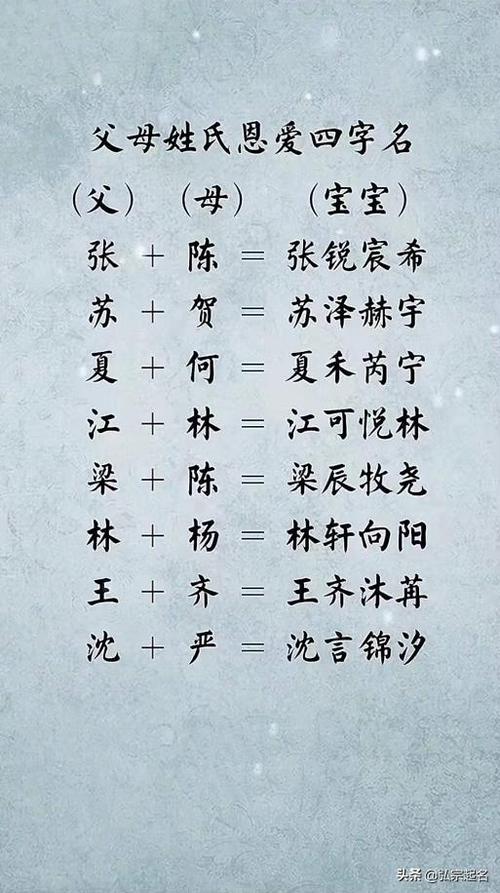 父母姓氏恩爱四字名
（父） （母） （宝宝）
张 + 陈 = 张锐宸希
苏 + 贺 = 苏泽赫宇
夏 + 何 = 夏禾芮宁
江 + 林 = 江可悦林
梁 + 陈 = 梁辰牧尧
林 + 杨 = 林轩向阳
王 + 齐 = 王齐沐苒
沈 + 严 = 沈言锦汐
头条 @弘宗起名